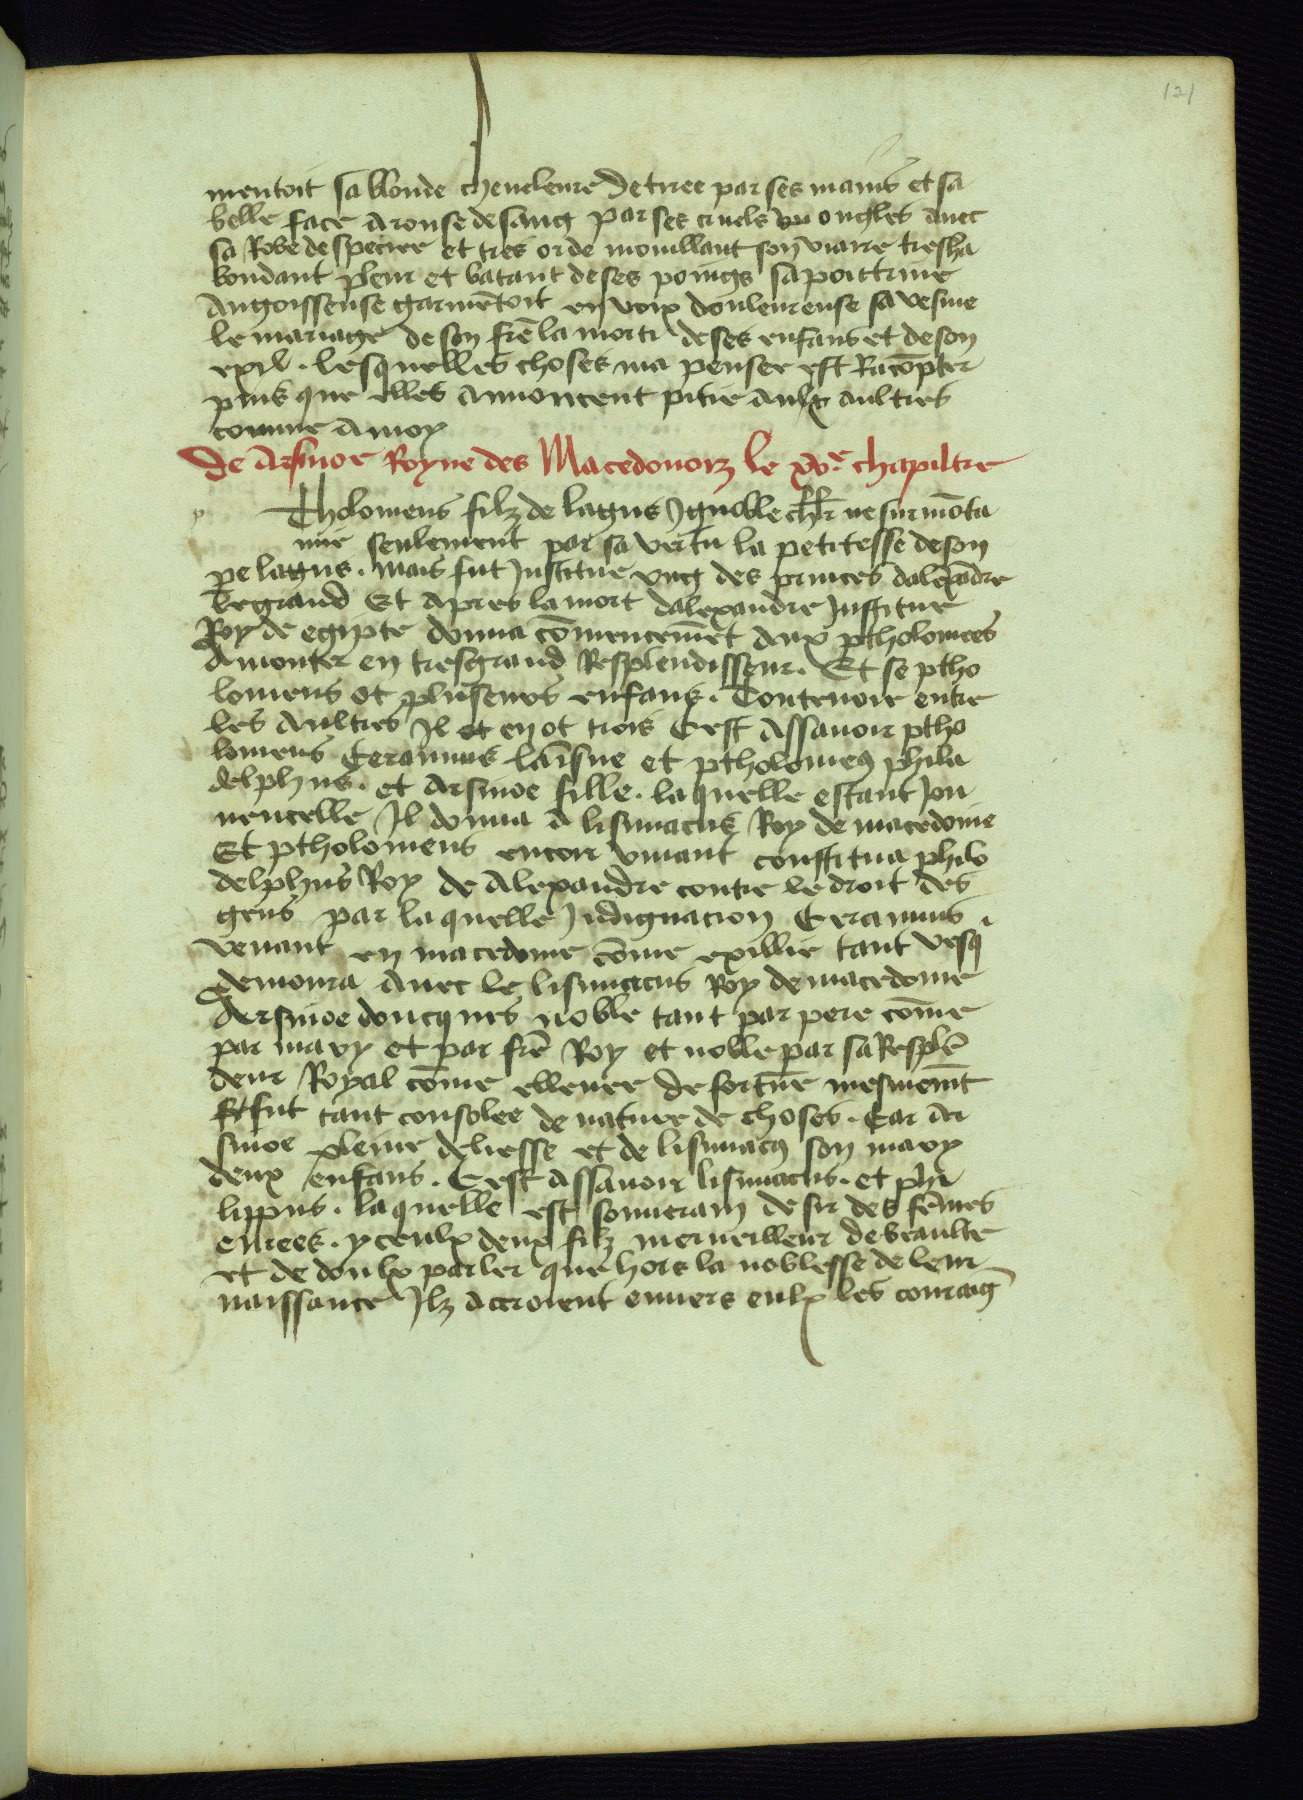 121
mentoit sa blonde cheueleure detiree par ses mains et sa
belle face arousee de sang par ses cruels ongles auec
sa Robe despeciee et tres orde mouillant son viaire tresha
bondant pleur et batant de ses poings sa poittrine
Angoisseuse garmētoit en voix douleureuse sa vesme
le mariage de son frē la mort de ses enfans et de son
exil . lesquelles choses ma pensee est Racōpter
puis que elles annoncent pitie aulx aultres
comme a moy
De Arsinoe Royne des Macedonorz le xve chapiltre
p Tholomeus filz de lagus Ignoble chlr̄ ne surmōta
mie seulement par sa vertu la petitesse de son
pe lagus . mais fut Institue vng des princes dalexādre
le grand Et apres la mort dalexandre Institue
Roy de egipte donna cōmencemēt aux ptholomees
a monter en tresgrand Resplendisseur . Et se ptho
lomeus ot pluseurs enfans . Toutenoie entre
les aultres Il et en ot trois Cest assauoir ptho
lomeus Ceraunus laīsne et ptholomeꝯ phila
delphus . et Arsinoe fille . la quelle estant Jou
uencelle Il donna a lisimacus Roy de macedonie
Et ptholomeus encor viuant constitua philo
delphus Roy de Alexandre contre le droit des
gens par la quelle Indignacion Ceraunus .
venant en macedonie cōme exillie tant vesq̄
demoura auec le lisimacus Roy de macedonie
Arsinoe doncques noble tant par pere cōme
par mary et par frē Roy et noble par sa Resplē
deur Royal cōme elleuee de fortune mesmemēt
Et fut tant consolee de nature de choses . Car Ar
sinoe pleine deliesse et de lisimacꝯ son mary
deux enfans . Cest assauoir lisimacus . et phi
lippus . laquelle est souuerain desir des fēmes
eurees . yceulx deux filz merueilleux de beaulte
et de doulx parler que hors la noblesse de leur
naissance Ilz accroient enuers eulx les couraiḡ